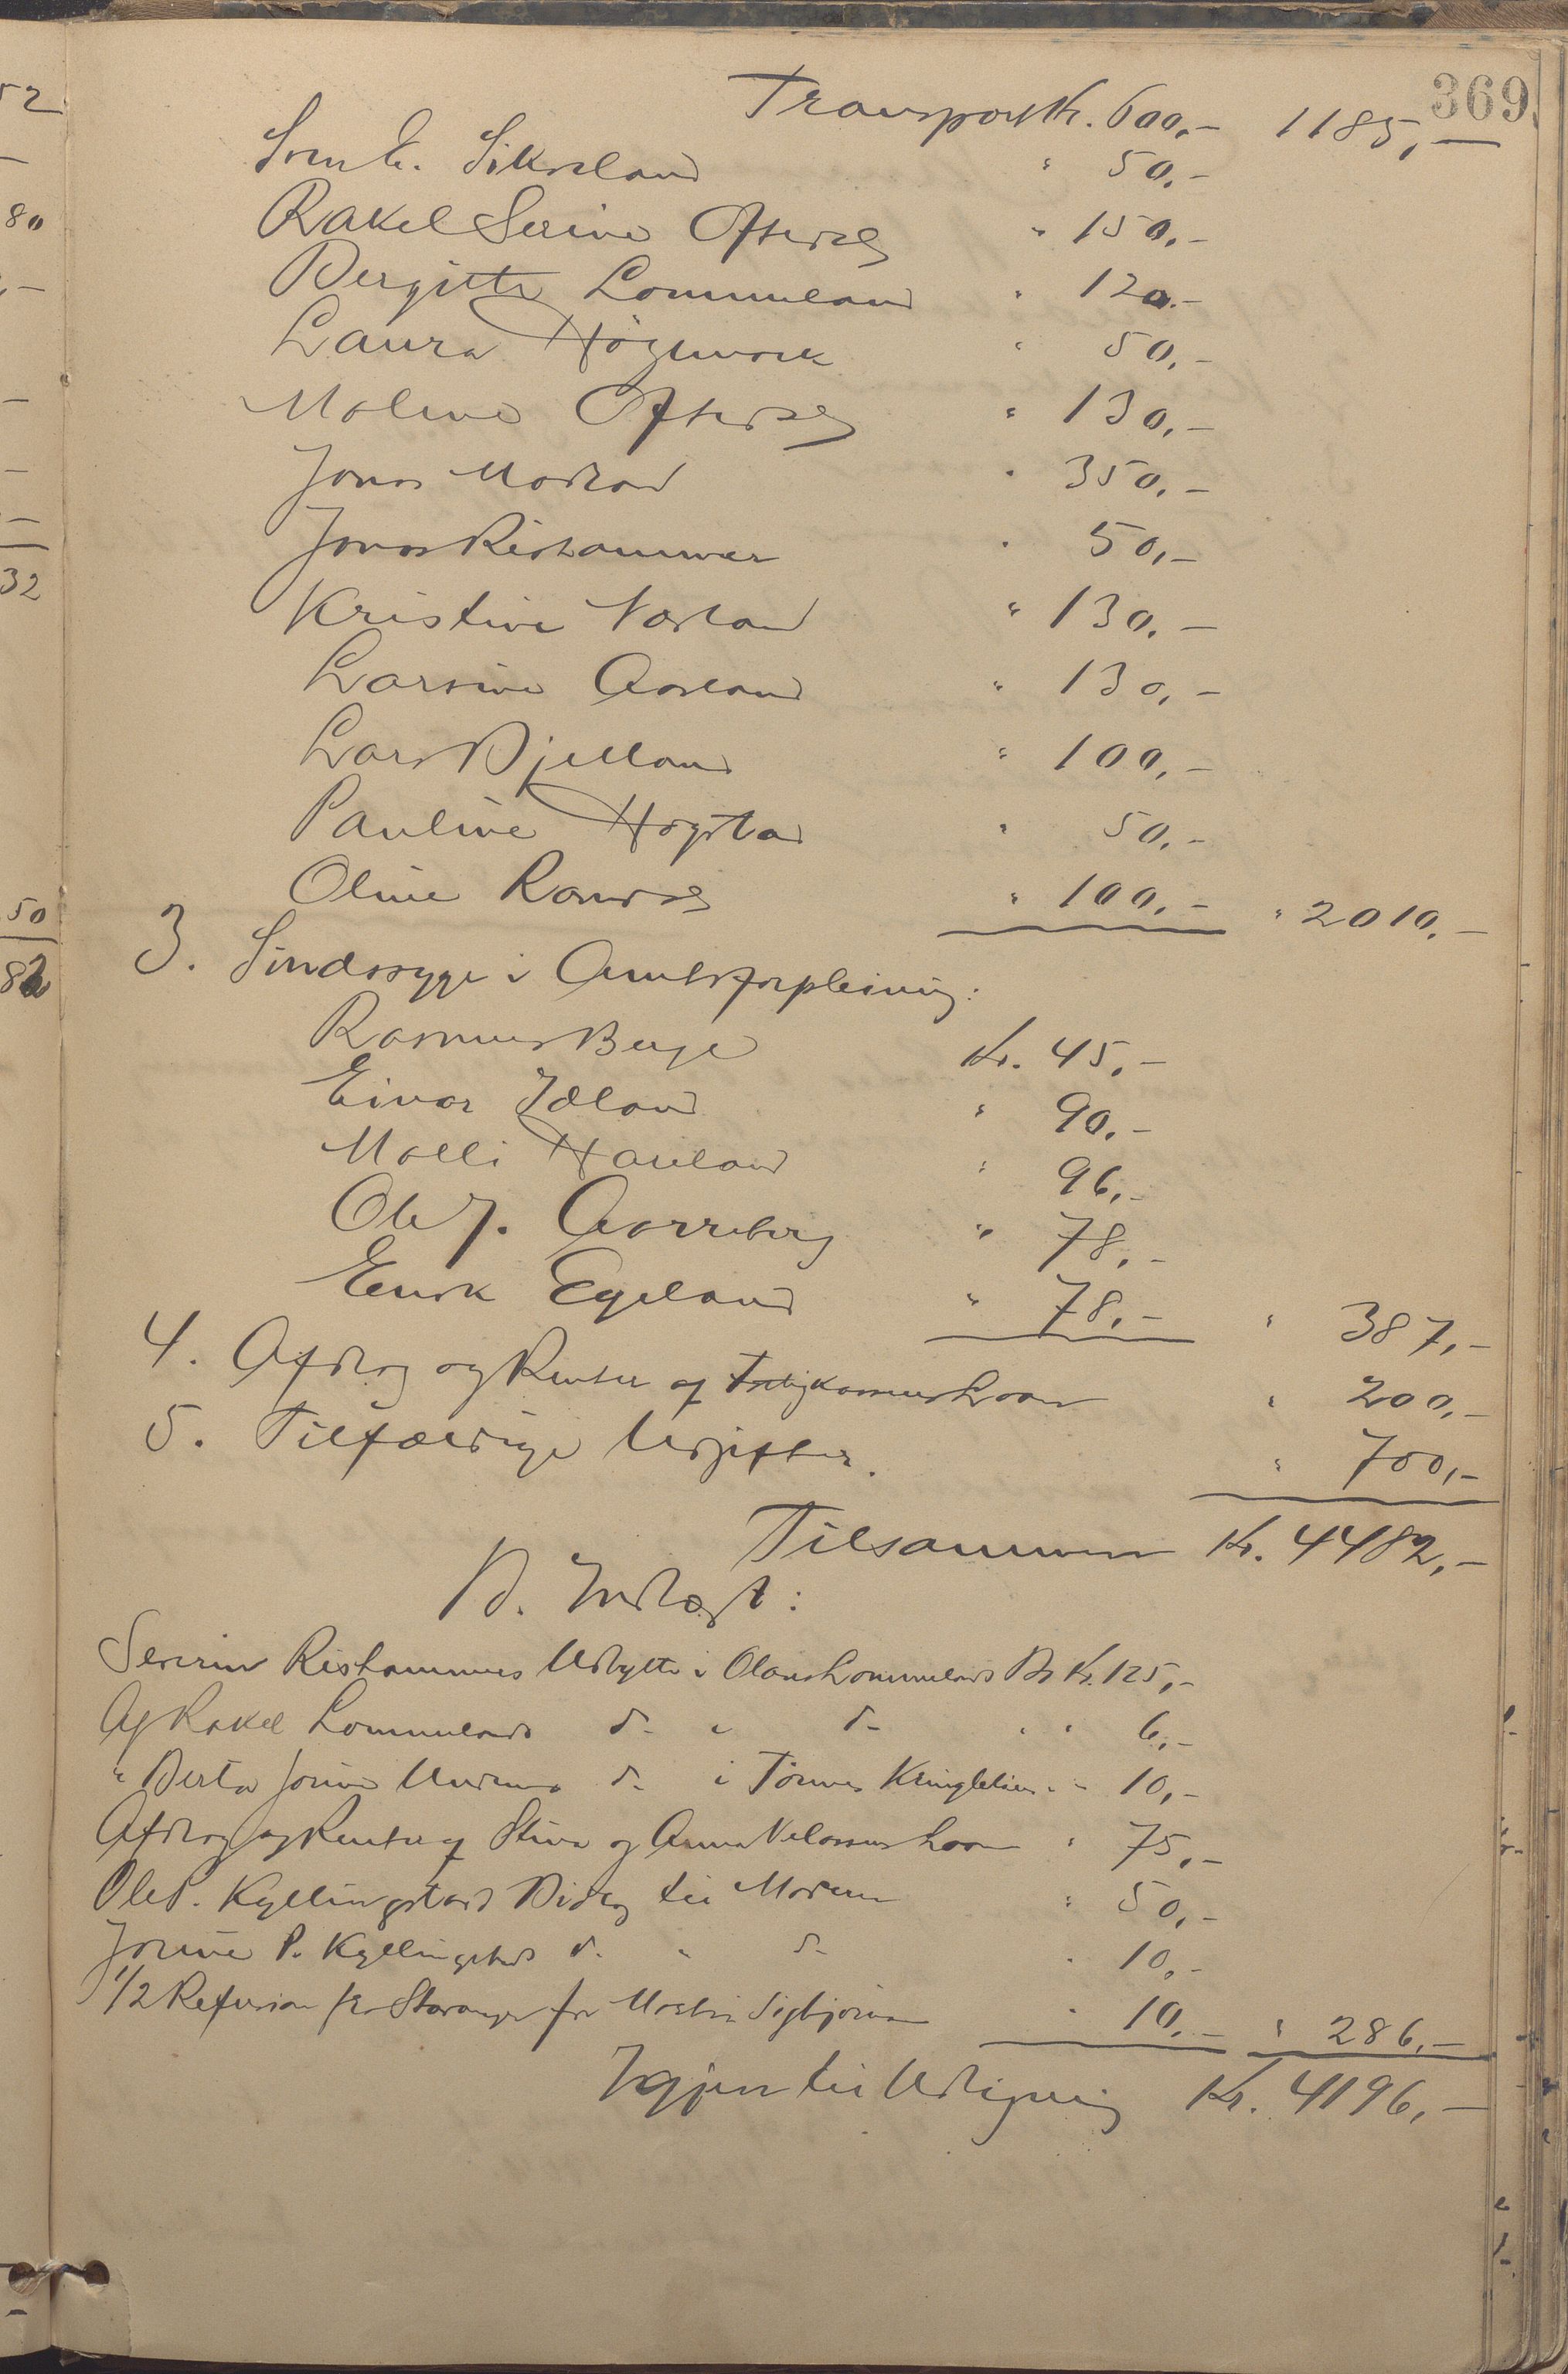 369
Transport Kr. 600,- 1185,-
Sven E. Sikveland " 50,-
Rakel Serine Oftedal " 150,-
Bergitte Lommeland " 120.-
Laura Høgemork " 50,-
Malene Oftedal " 130,-
Jonas Madland " 350,-
Jonas Rishammer " 50,-
Kristine Norland " 130,-
Larsine Aasland " 130,-
Lars Bjelland " 100,-
Pauline Høgstad " 50,-
Oline Ramsdal " 100,- " 2010,-
3. Sindssyge i Amtsforpleining:
Rasmus Berge Kr. 45,-
Einar Idland " 90,-
Malli Hauland " 96,-
Ole J. Aarreberg " 78,-
Enok Egeland " 78,- " 387,-
4. Afdrag og Renter af Fattigkassens Laan " 200,-
5. Tilfældige Udgifter. " 700,-
Tilsammen Kr. 4482,-
B. Indtægt:
Severin Rishammers Udbytte i Olaus Lommelands Bo Kr. 125,-
Af Rakel Lommelands do " do " " 6,-
" Berta Jonine Undems do i Tönnes Kringlelien " " 10,-
Afdrag og Renter af Stine og Anna Laan " 75,-
Ole P. Kyllingstads Bidrag til Moderen " 50,-
Jonine P. Kyllingstads do " do " 10,-
1/2 Refusion fra Stavanger for Martin Sigbjörnsen " 10,- " 286,-
Igjen til Udligning Kr. 4196,-
52
80
32
50
82